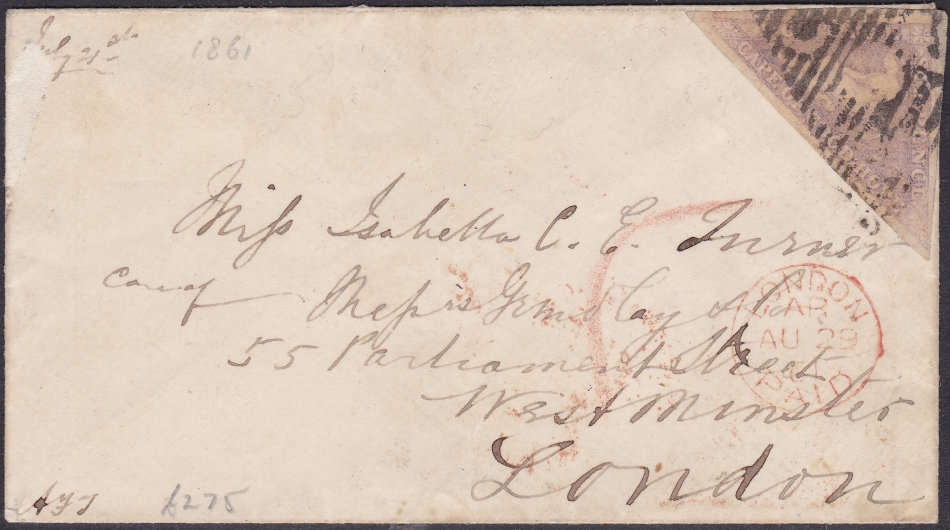 July 21st
1861
CAPE
PENCE
Miss Isabella C. C. Turner
Care of Messrs Grindlay & Co
55 Parliament Street
West Minster
London
LONDON
AR
AU 29
PAID
£275